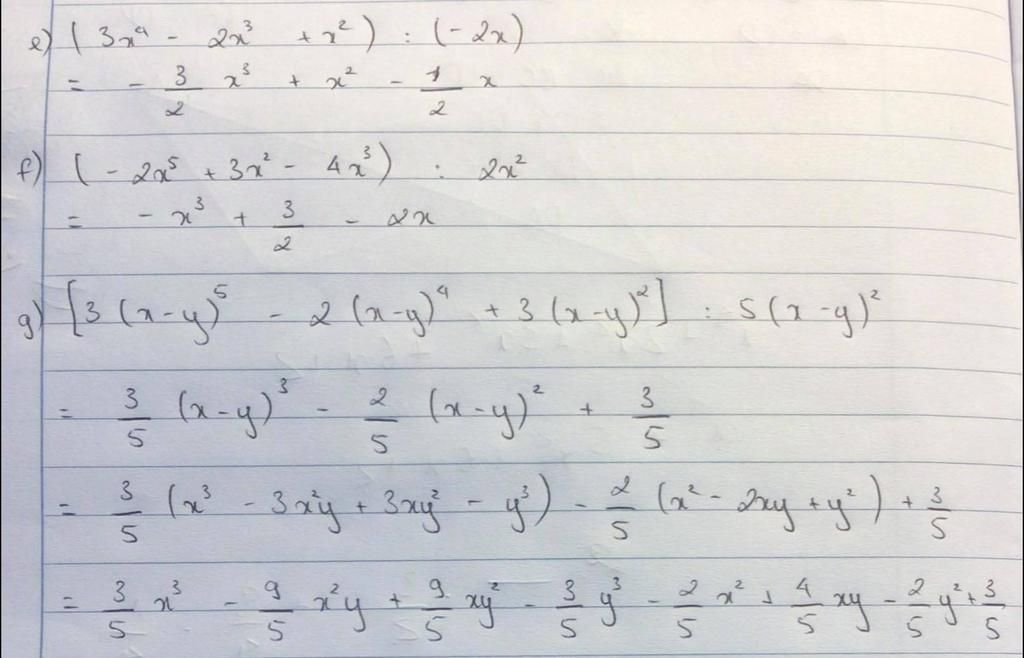 e) (3x⁴ - 2x³ + x²) : (-2x)
= - 3/2 x³ + x² - 1/2 x
f) (-2x⁵ + 3x² - 4x³) : 2x²
= - x³ + 3/2 - 2x
g) [3(x-y)⁵ - 2(x-y)⁴ + 3(x-y)²] : 5(x-y)²
= 3/5 (x-y)³ - 2/5 (x-y)² + 3/5
= 3/5 (x³ - 3x²y + 3xy² - y³) - 2/5 (x² - 2xy + y²) + 3/5
= 3/5 x³ - 9/5 x²y + 9/5 xy² - 3/5 y³ - 2/5 x² + 4/5 xy - 2/5 y² + 3/5